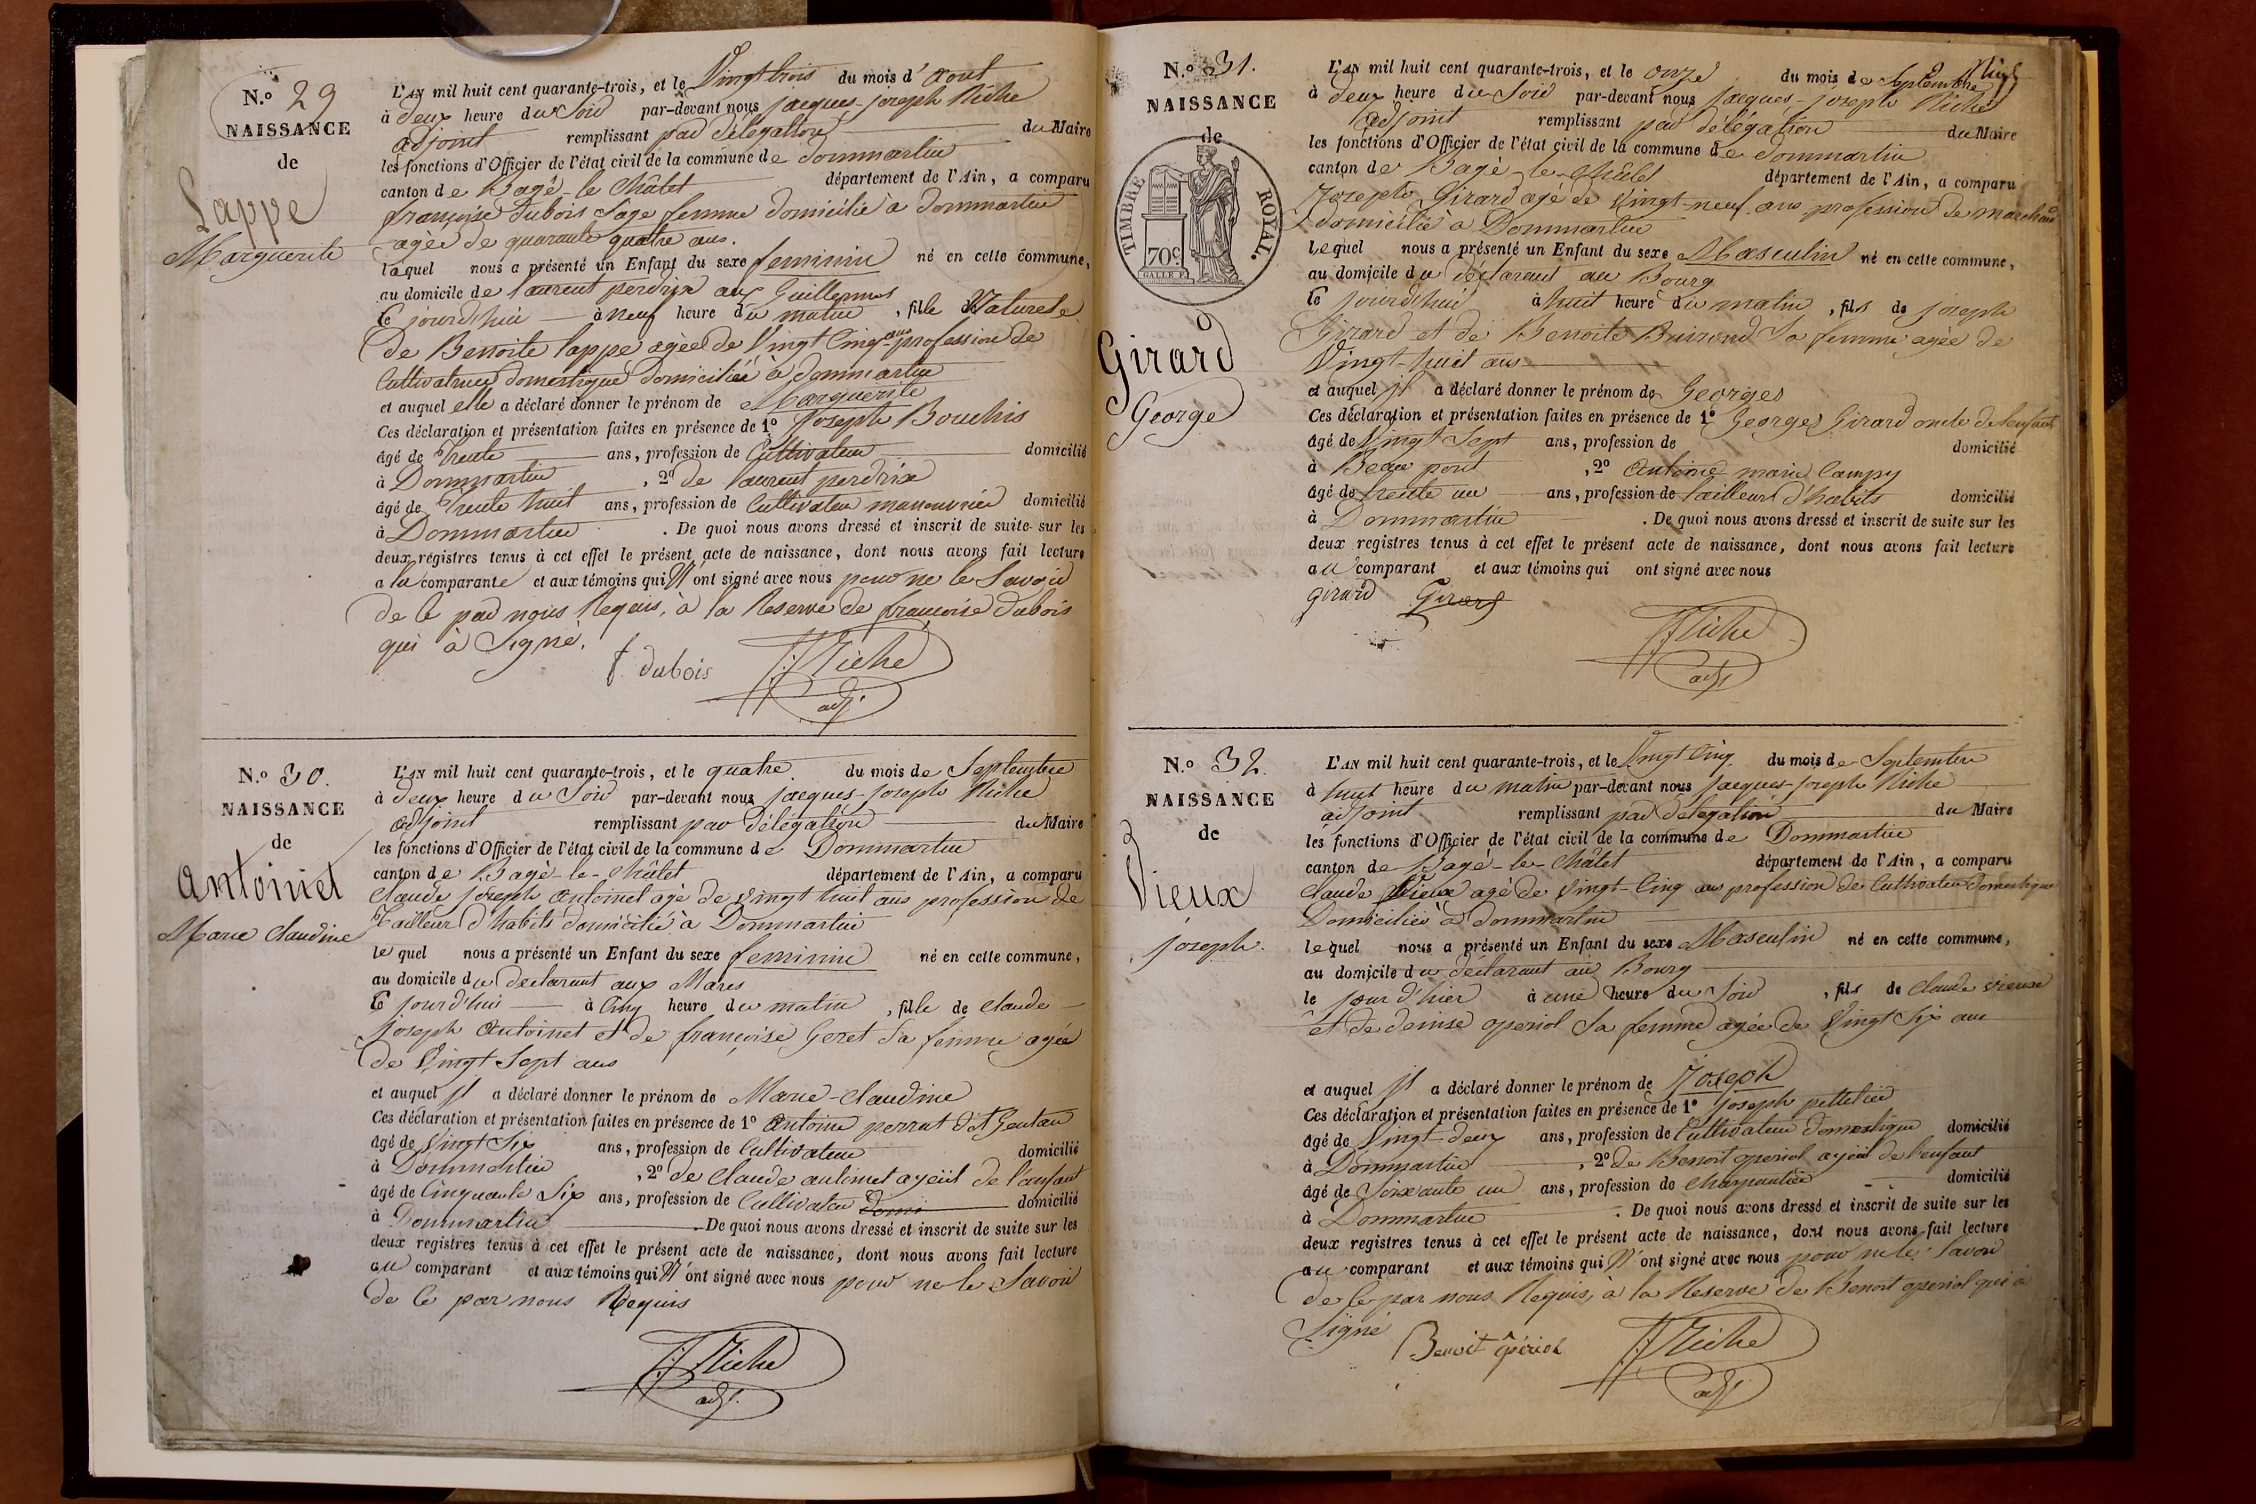 N.º 29
NAISSANCE
de
Lappe
Marguerite
L'AN mil huit cent quarante-trois, et le Vingt trois du mois d'Aout
à deux heure du Soir par-devant nous jacques-joseph Niche
adjoint remplissant par délégation du Maire
les fonctions d'Officier de l'état civil de la commune de Dommartin
canton de Bagé-le-Châtel département de l'Ain, a comparu
françoise Dubois Sage femme domiciliée à Dommartin
agée de quarante quatre ans.
laquel nous a présenté un Enfant du sexe feminin né en cette commune,
au domicile de laurent perdrix aux Guillermes
Ce jourd'hui à neuf heure du matin, fille Naturele
de Benoite lappe agée de Vingt Cinq ans profession de
Cultivatrice domestique domiciliée à dommartin
et auquel elle a déclaré donner le prénom de Marguerite
Ces déclaration et présentation faites en présence de 1º Joseph Bouchis
âgé de Trente ans, profession de Cultivateur domicilié
à Dommartin, 2º de laurent perdrix
âgé de Trente huit ans, profession de Cultivateur manouvrier domicilié
à Dommartin. De quoi nous avons dressé et inscrit de suite sur les
deux registres tenus à cet effet le présent acte de naissance, dont nous avons fait lecture
a la comparante et aux témoins qui N'ont signé avec nous pour ne le Savoir
de ce par nous Requis, à la Reserve de françoise Dubois
qui à Signé.
f dubois JJ Niche
adj.
N.º 30.
NAISSANCE
de
Antoinet
Marie Claudine
L'AN mil huit cent quarante-trois, et le quatre du mois de Septembre
à deux heure du Soir par-devant nous jacques-joseph Niche
adjoint remplissant par délégation du Maire
les fonctions d'Officier de l'état civil de la commune de Dommartin
canton de Bagé-le-Châtel département de l'Ain, a comparu
Claude joseph Antoinet agé de Vingt huit ans profession de
Tailleur d'habits domicilié à Dommartin
le quel nous a présenté un Enfant du sexe feminin né en cette commune,
au domicile du declarant aux Mares
Ce jourd'hui à Cinq heure du matin, fille de Claude
joseph Antoinet et de françoise Geret Sa femme agée
de Vingt Sept ans
et auquel Il a déclaré donner le prénom de Marie-Claudine
Ces déclaration et présentation faites en présence de 1º Antoine perrat
âgé de Vingt Six ans, profession de Cultivateur domicilié
à Dommartin, 2º de Claude antoinet ayeüil de l'enfant
âgé de Cinquante Six ans, profession de Cultivateur domicilié
à Dommartin. De quoi nous avons dressé et inscrit de suite sur les
deux registres tenus à cet effet le présent acte de naissance, dont nous avons fait lecture
au comparant et aux témoins qui N'ont signé avec nous pour ne le Savoir
de Ce par nous Requis
JJ Niche
adj.
N.º 31.
NAISSANCE
de
TIMBRE ROYAL.
70c
Girard
George
L'AN mil huit cent quarante-trois, et le onze du mois de Septembre
à deux heure du Soir par-devant nous jacques-joseph Niche
adjoint remplissant par délégation du Maire
les fonctions d'Officier de l'état civil de la commune de Dommartin
canton de Bagé-le-Châtel département de l'Ain, a comparu
Joseph Girard agé de Vingt-neuf ans profession de marchand
domicilié à Dommartin
Lequel nous a présenté un Enfant du sexe Masculin né en cette commune,
au domicile du déclarant au Bourg
Ce jourd'hui à huit heure du matin, fils de joseph
Girard et de Benoite Buirond Sa femme agée de
Vingt-huit ans
et auquel Il a déclaré donner le prénom de Georges
Ces déclaration et présentation faites en présence de 1º George Girard oncle de l'enfant
âgé de Vingt Sept ans, profession de domicilié
à Beau pont, 2º Antoine marie Campy
âgé de trente un ans, profession de tailleur d'habits domicilié
à Dommartin. De quoi nous avons dressé et inscrit de suite sur les
deux registres tenus à cet effet le présent acte de naissance, dont nous avons fait lecture
au comparant et aux témoins qui ont signé avec nous
girard Girard
JJ Niche
adj
N.º 32.
NAISSANCE
de
Vieux
joseph.
L'AN mil huit cent quarante-trois, et le Vingt Cinq du mois de Septembre
à huit heure du matin par-devant nous jacques-joseph Niche
adjoint remplissant par délégation du Maire
les fonctions d'Officier de l'état civil de la commune de Dommartin
canton de Bagé-le-Châtel département de l'Ain, a comparu
Claude Vieux agé de Vingt-Cinq ans profession de Cultivateur domestique
Domicilié à dommartin
lequel nous a présenté un Enfant du sexe Masculin né en cette commune,
au domicile du déclarant au Bourg
le jour d'hier à une heure du Soir, fils de Claude vieux
et de denise operiol Sa femme agée de Vingt Six ans
et auquel Il a déclaré donner le prénom de Joseph
Ces déclaration et présentation faites en présence de 1º joseph pelletier
âgé de Vingt-deux ans, profession de Cultivateur domestique domicilié
à Dommartin, 2º de Benoit operiol ayeül de l'enfant
âgé de Soixante un ans, profession de Charpentier domicilié
à Dommartin. De quoi nous avons dressé et inscrit de suite sur les
deux registres tenus à cet effet le présent acte de naissance, dont nous avons fait lecture
au comparant et aux témoins qui N'ont signé avec nous pour ne le Savoir
de ce par nous Requis, à la Reserve de Benoit operiol qui a
Signé
Benoit opériol JJ Niche
adj.